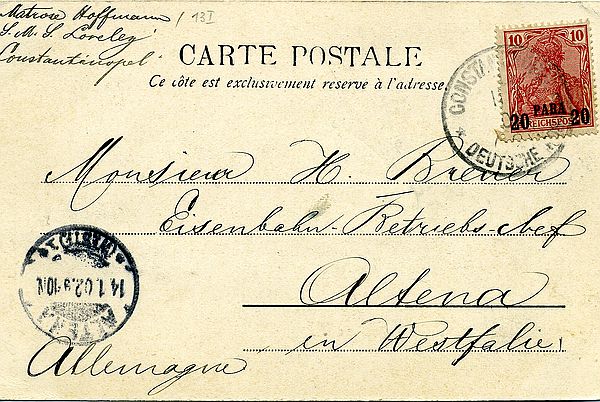 Matrose Hoffmann / 13I
S. M. S. Loreley
Constantinopel
CARTE POSTALE
Ce côte est exclusivement reserve à l'adresse.
10 10
PARA
20 20
REICHSPOST
DEUTSCHE
Monsieur H. Breuer
Eisenbahn-Betriebs-chef
Altena
in Westfalie
Allemagne
14.1.02.9-10N.